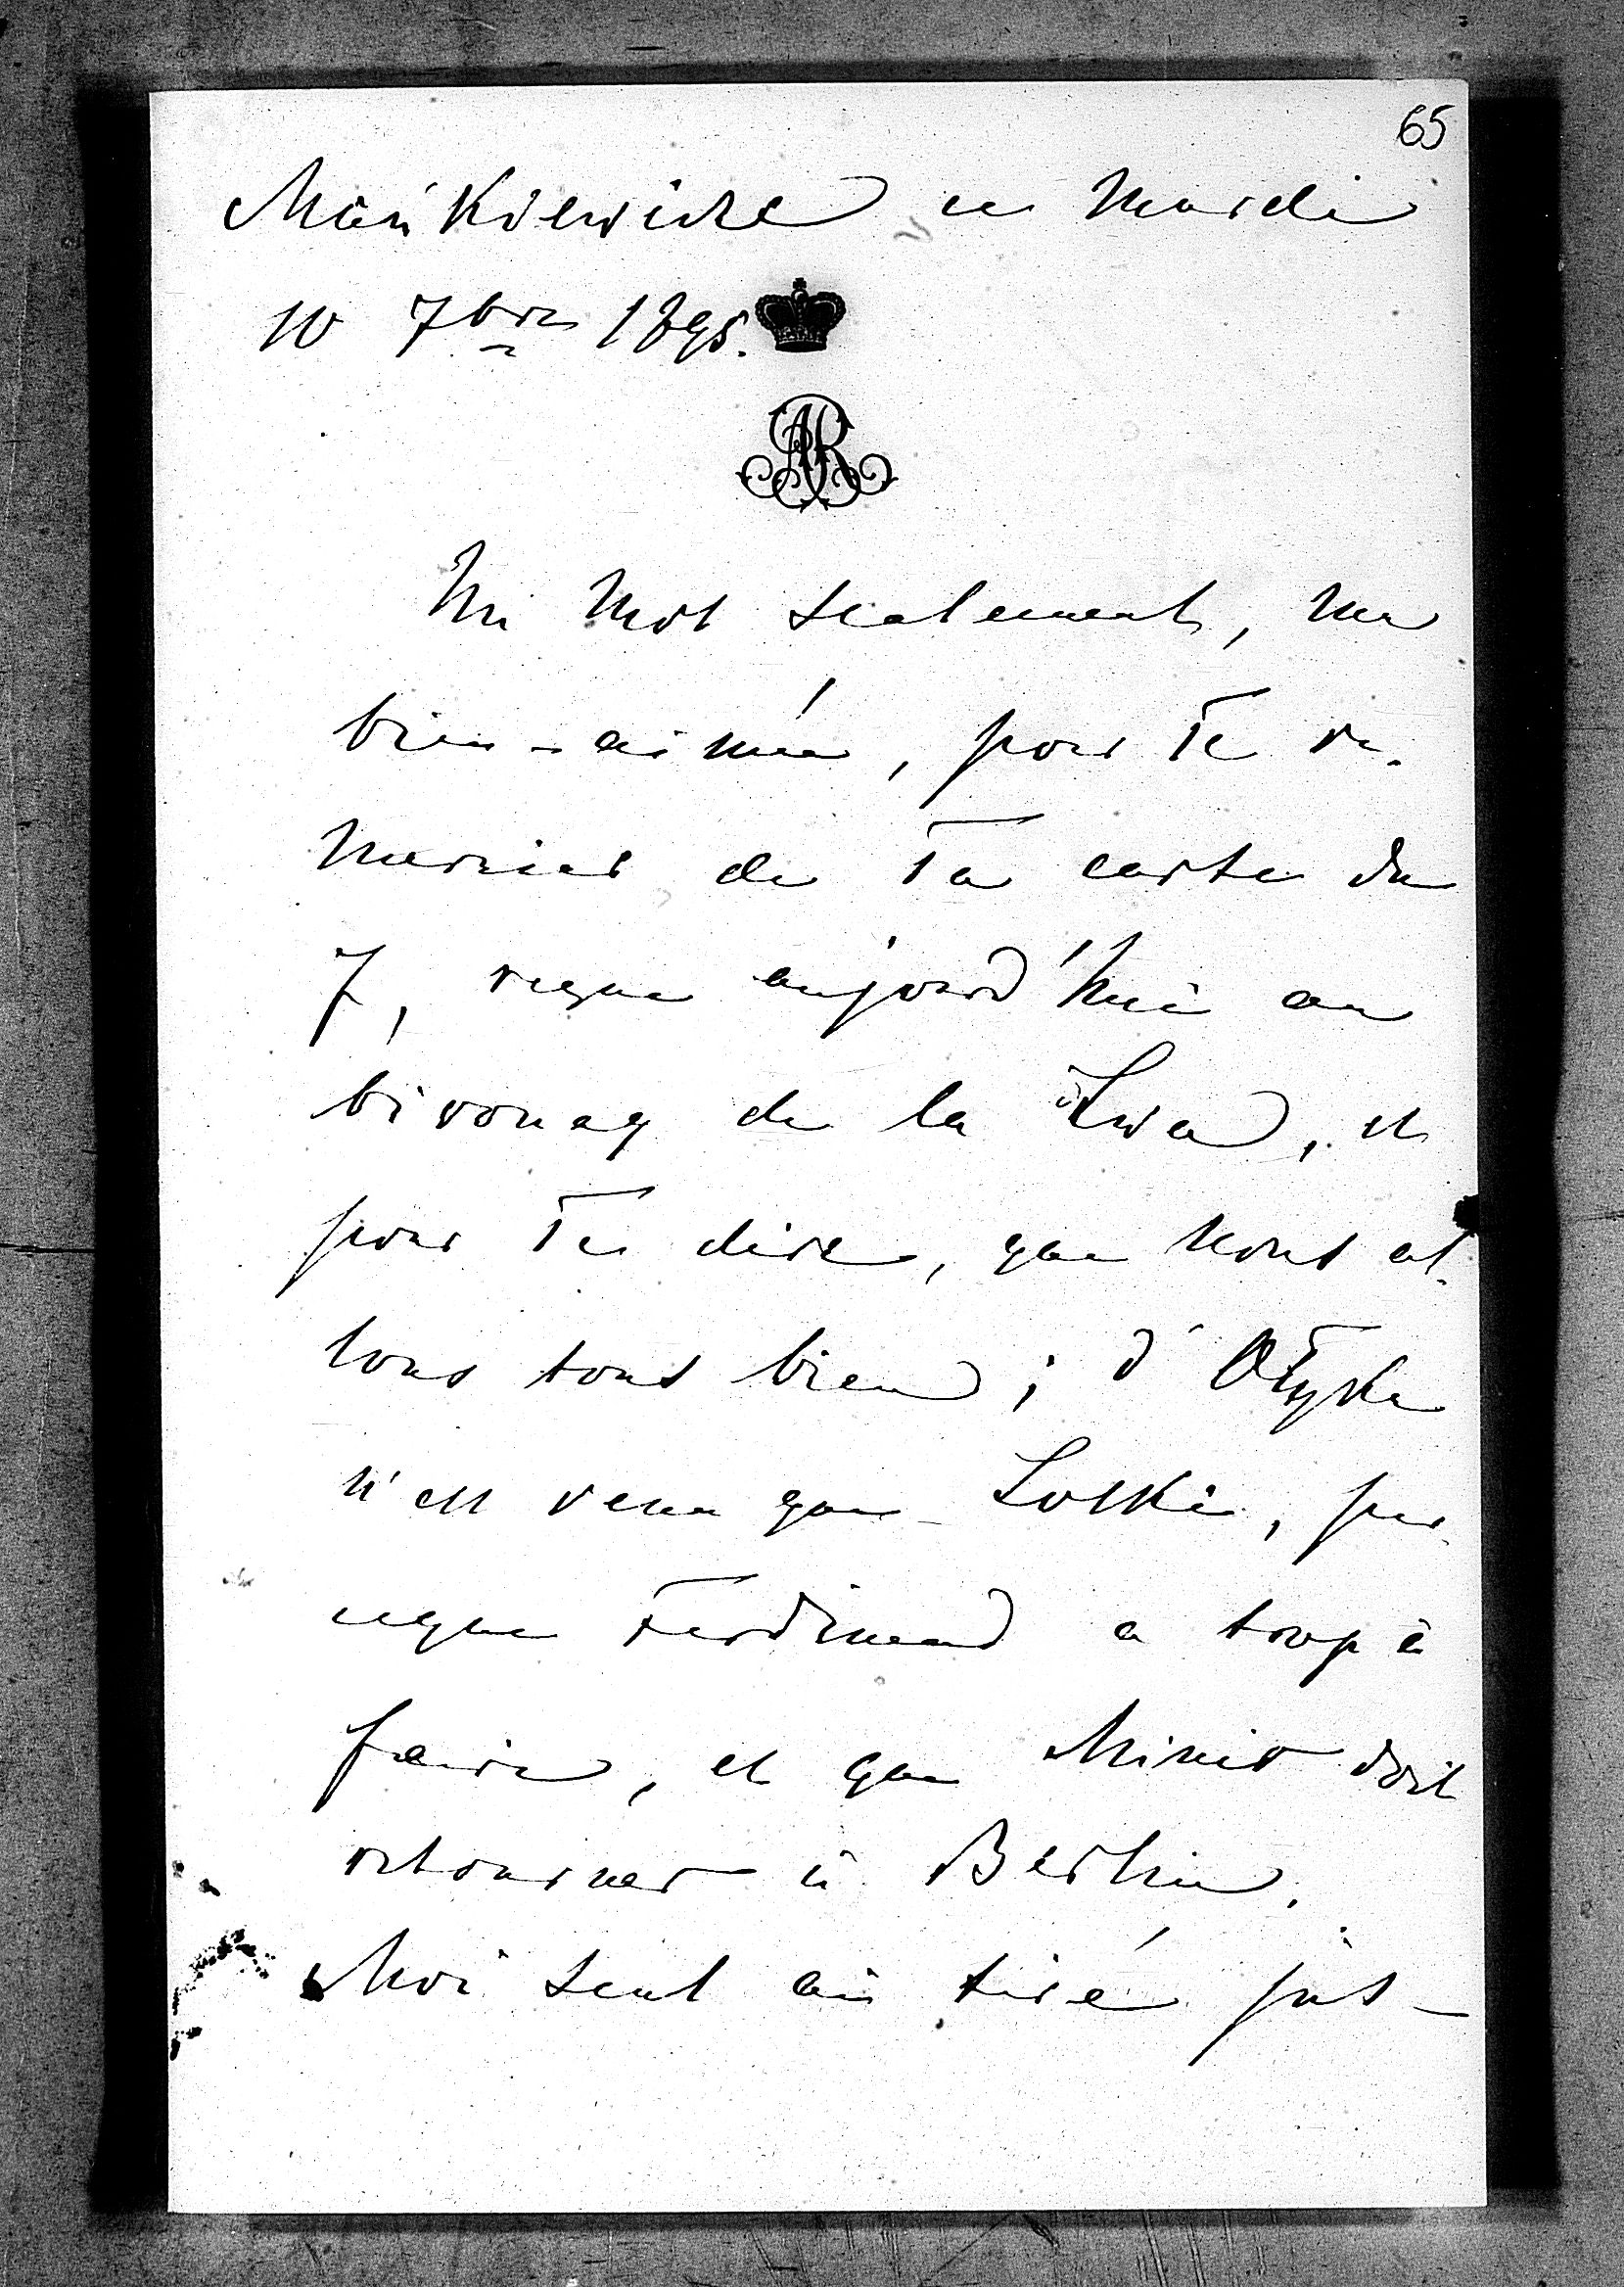 65
Mańkiewicze ce Mardi
10 7bre 1895.
AR
Un mot seulement, ma
bien-aimée, pour Te re-
mercier de Ta carte du
7, reçue aujourd'hui au
bivouaq de la Lwa, et
pour Te dire, que nous al-
lons tous bien; d'Ołyka
n'est venu que Lolski, par-
ceque Ferdinand a trop à
faire, et que doit
retourner à Berlin.
Moi seul ai tiré jus-